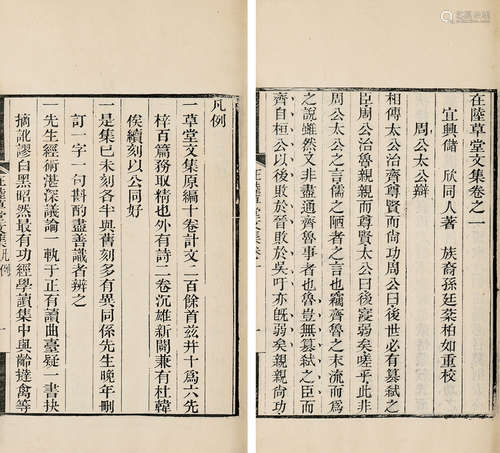 在陸草堂文集卷之一
宜興儲 欣同人著 族裔孫廷棻柏如重校
周公太公辯
相傳太公治齊尊賢而尚功周公曰後世必有篡弒之
臣周公治魯親親而尊賢太公曰後寖弱矣嗟乎此非
周公太公之言儒之陋者之言也竊齊魯之末流而爲
之說雖然又非盡通齊魯事者也魯豈無篡弒之臣而
齊自桓公以後敗於晉敗於吳吁亦旣弱矣親親尚功
在陸草堂文集卷一
一
凡例
一草堂文集原編十卷計文二百餘首兹幷十爲六先
梓百篇務取精也外有詩二卷沉雄新闢兼有杜韓
俟續刻以公同好
一是集已未刻各半與舊刻多有異同係先生晚年刪
訂一字一句斟酌盡善識者辨之
一先生經術湛深議論一執于正有讀曲臺疑一書抉
摘訛謬白黑昭然最有功經學讀集中與齡達禽等
在陸草堂文集凡例
一